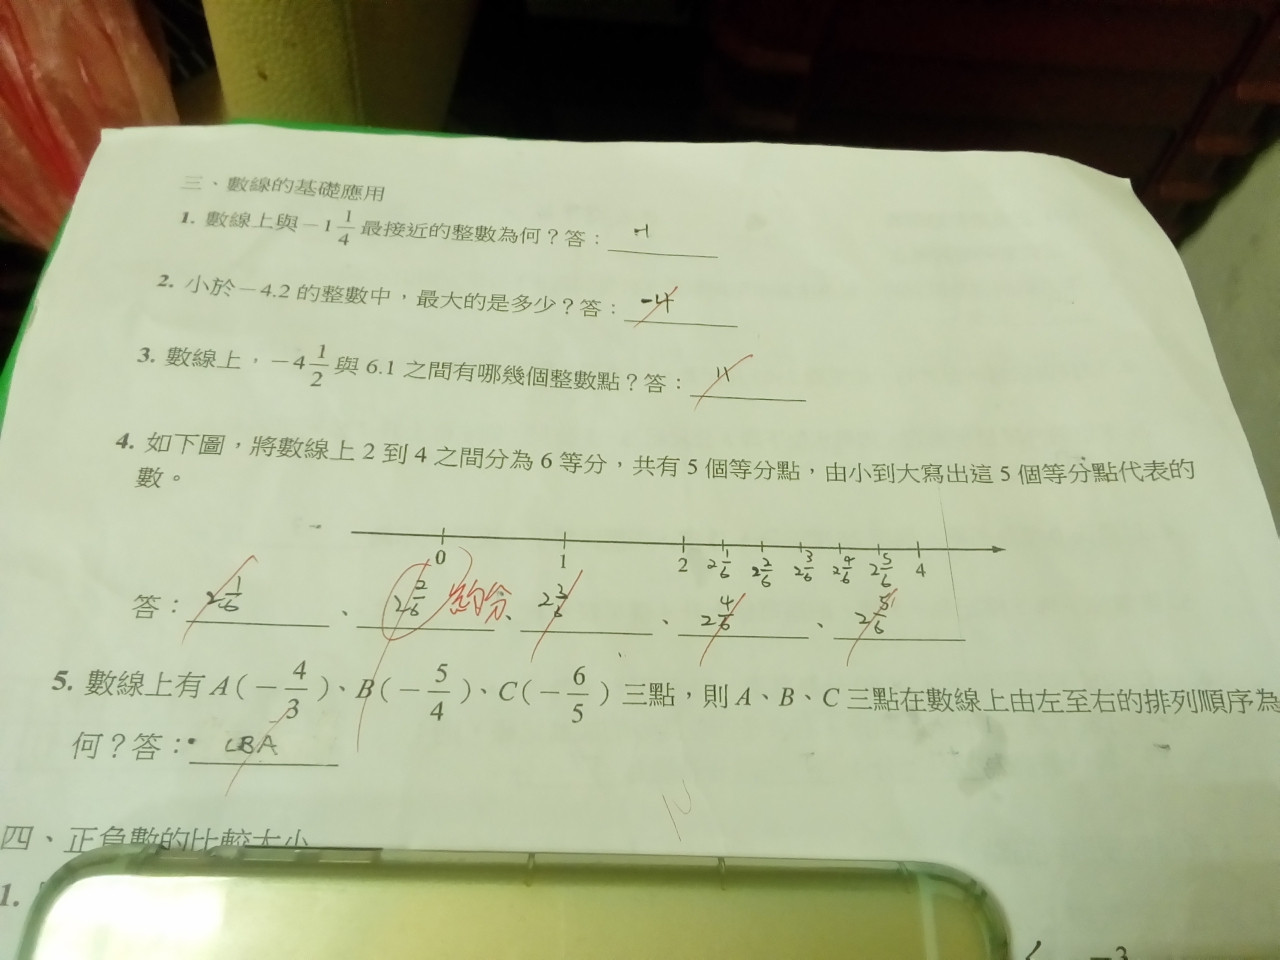 三、數線的基礎應用
1. 數線上與－1 1/4 最接近的整數為何？答： -1
2. 小於－4.2 的整數中，最大的是多少？答： -4
3. 數線上，－4 1/2 與 6.1 之間有哪幾個整數點？答： 11
4. 如下圖，將數線上 2 到 4 之間分為 6 等分，共有 5 個等分點，由小到大寫出這 5 個等分點代表的
數。
0 1 2 2 1/6 2 2/6 2 3/6 2 4/6 2 5/6 4
答： 2 1/6 、 2 2/6 約分 、 2 3/6 、 2 4/6 、 2 5/6
5. 數線上有 A（－4/3）、B（－5/4）、C（－6/5）三點，則 A、B、C 三點在數線上由左至右的排列順序為
何？答： CBA
四、正負數的比較大小
1.
－3